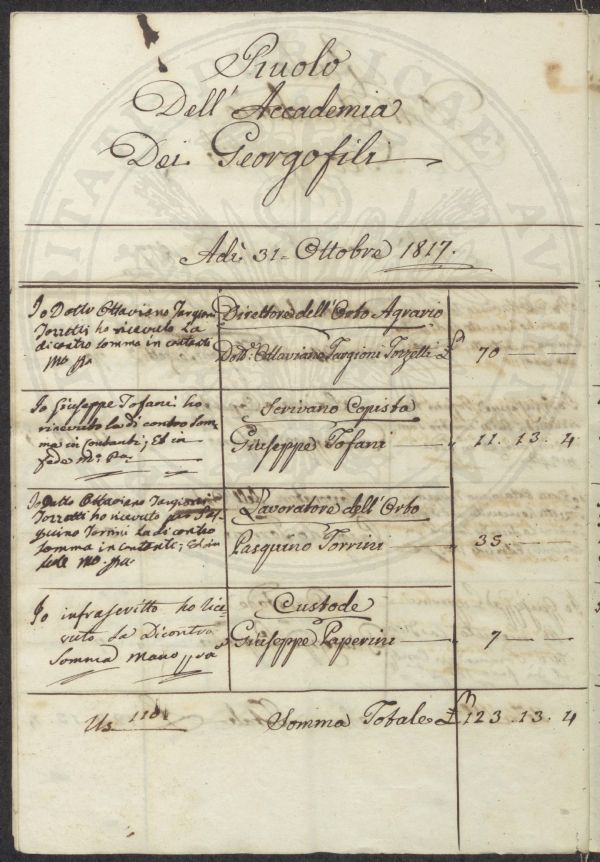 Ruolo
Dell' Accademia
Dei Georgofili
Adì 31. Ottobre 1817.
Io Dottr Ottaviano Targioni
Tozzetti ho ricevuto la
di contro somma in contanti
Mo. ppa
Direttore dell'Orto Agrario
Dott. Ottaviano Targioni Tozzetti £ 70 — —
Io Giuseppe Tofani ho
ricevuto la di contro Som-
ma in contanti; Ed in
fede Mo. Pa.
Scrivano Copista
Giuseppe Tofani — " 11. 13. 4
Io Dottr Ottaviano Targioni
Tozzetti ho ricevuto per Pas-
quino Torrini la di contro
somma in contanti; Ed in
fede Mo. ppa.
Lavoratore dell'Orto
Pasquino Torrini — " 35 — —
Io infrascritto ho rice
vuto la Dicontro
Somma Mano
Custode
Giuseppe Paperini — " 7 — —
Somma Totale £ 123. 13. 4